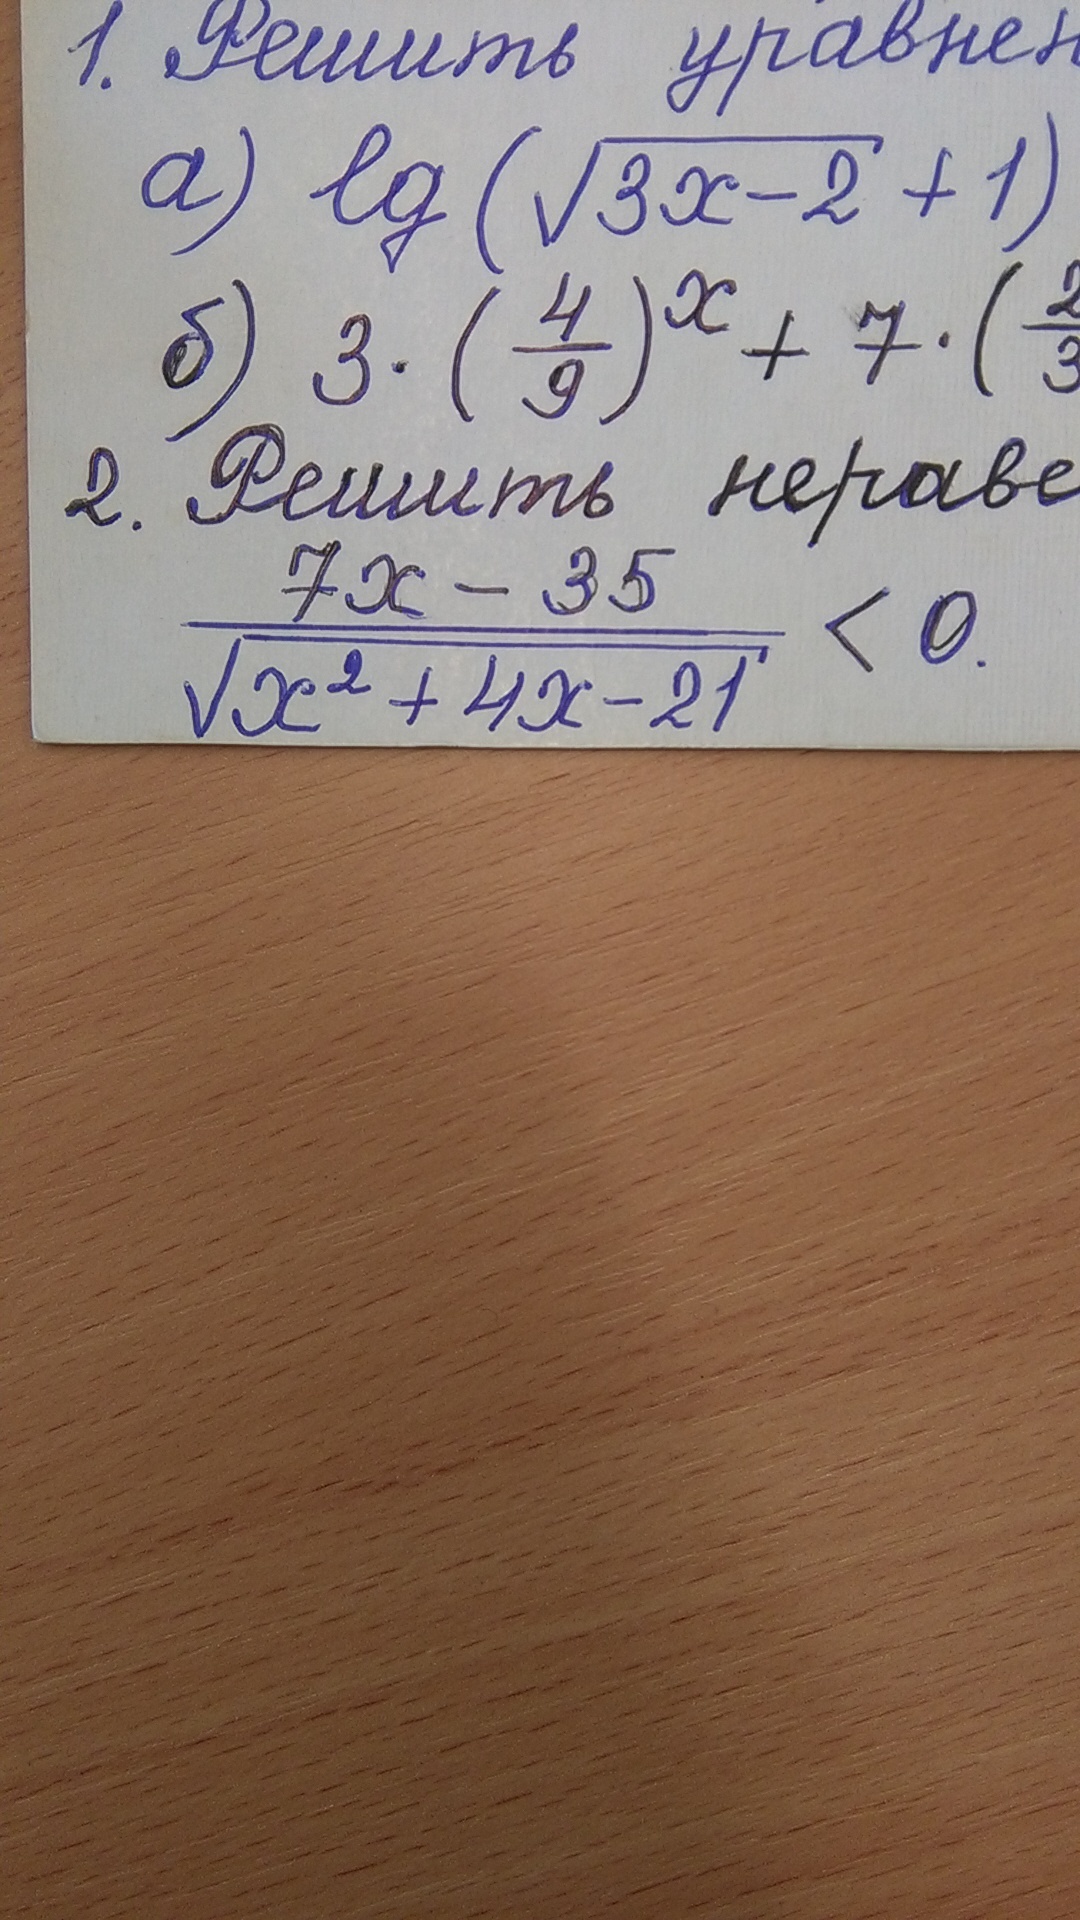 1. Решить уравнен
а) lg(√(3x-2) + 1)
б) 3·(4/9)^x + 7·(2/3
2. Решить нераве
(7x - 35)/√(x² + 4x - 21) < 0.